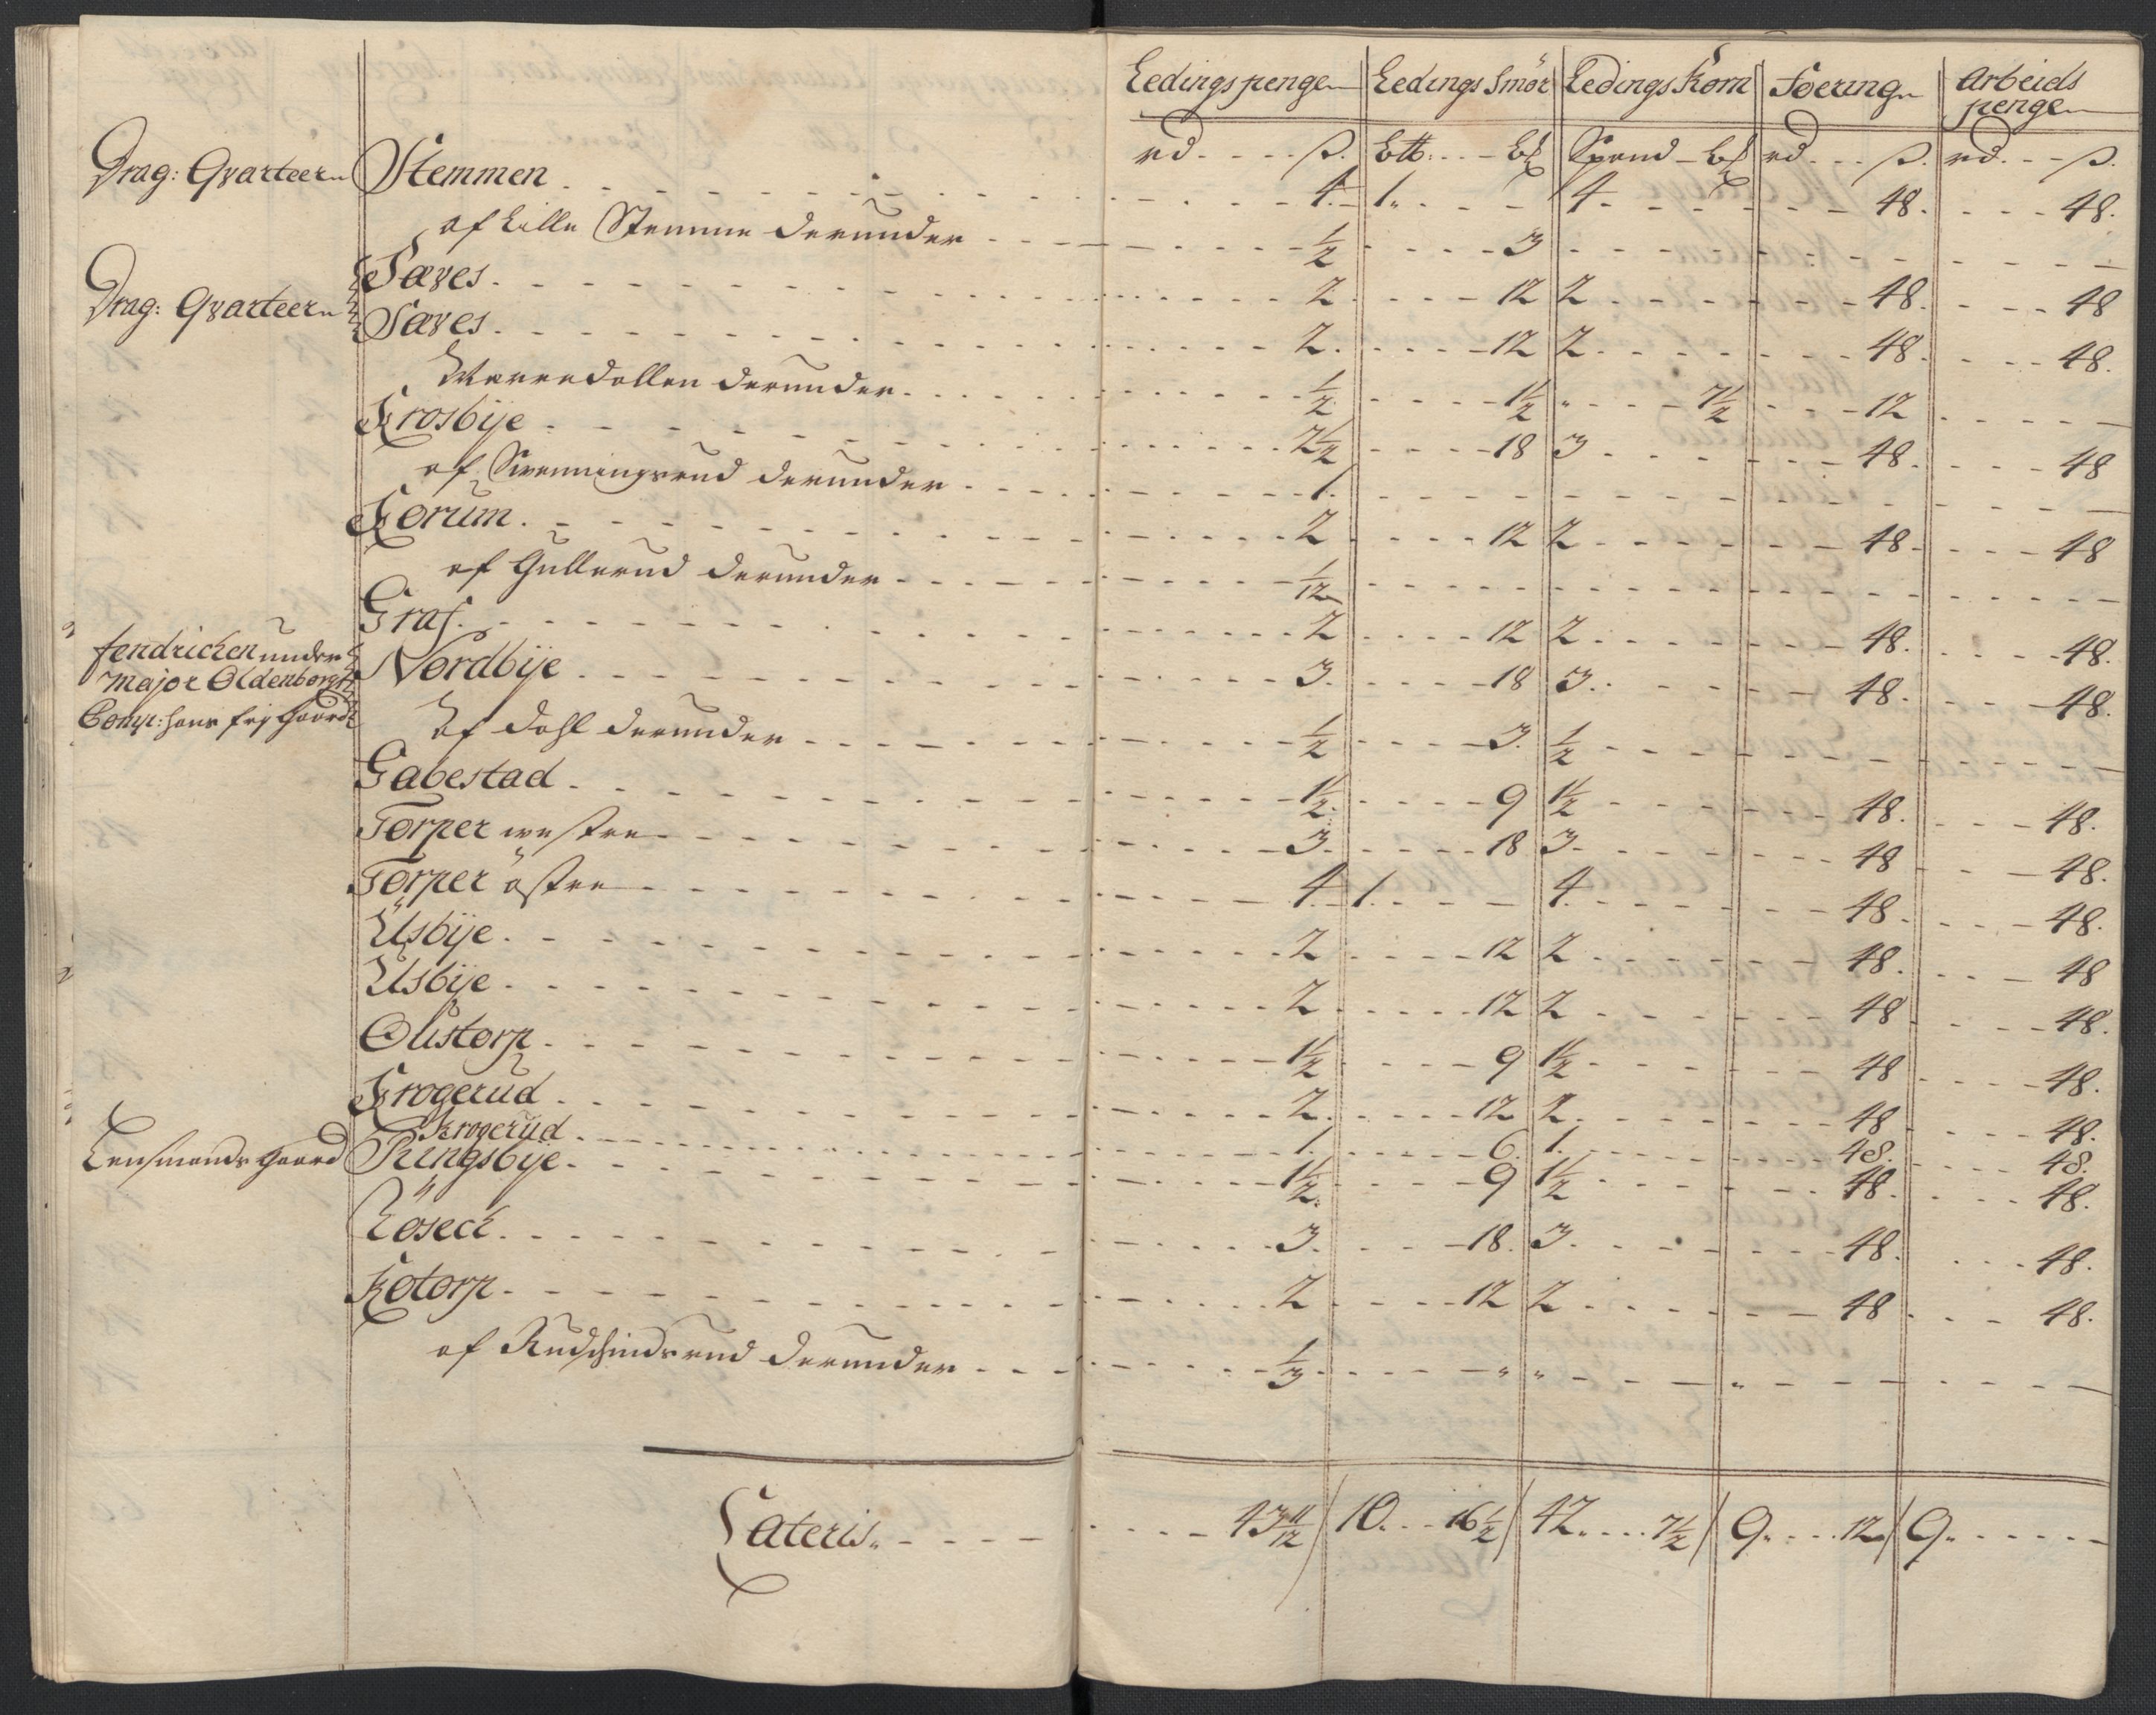 Ledings penge Ledings Smör Ledings Korn Foering Arbeids penge
rd ß. Btt: Bß Spand Bß rd ß. rd ß.
Drag: Qvarteer Stemmen 4. 1. 4. 48. 48.
af Lille Stemme derunder 1/2 3
Sæves 2 12 2 48. 48
Drag: Qvarteer Sæves 2. 12 2 48. 48.
derunder 1/2 1 1/2 " 7 1/2 12
Krosbÿe 2 1/2 18 3 48. 48
af Svenningsrud derunder 1.
Korum 2 12 2 48 48
af Gullerud derunder 1/12
Graf 2 12 2 48. 48.
fendrichen under
Major Oldenborgs
Comp: hans frj Gaard
Nordbÿe 3. 18 3. 48. 48.
Af dahl derunder 1/2 3. 1/2
Gabestad 1 1/2 9 1 1/2 48. 48.
Torper westre 3. 18 3. 48 48.
Torper östre 4. 1. 4. 48. 48.
Usbÿe 2 12 2 48. 48
Usbÿe 2 12 2 48 48.
Olistorp 1 1/2 9 1 1/2 48 48.
Krogerud 2. 12 2. 48 48.
Krogerud 1. 6. 1. 48. 48.
Lensmands Gaard Ringsbÿe 1 1/2 9 1 1/2 48. 48.
Röseck 3. 18. 3. 48. 48.
Kotorp 2 12 2 48 48.
af derunder 1/3 " " "
Lateris 43 11/12 10. 16 1/2 42. 7 1/2 9. 12 9.